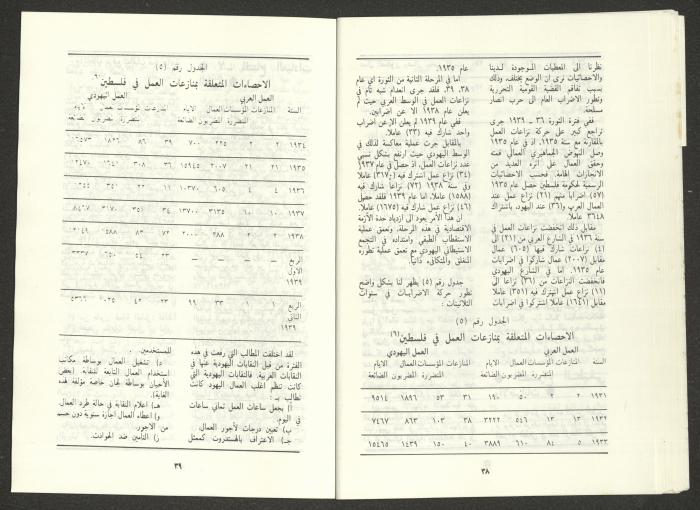 نظرنا الى المعطيات الموجودة لدينا
والاحصائيات نرى ان الوضع يختلف، وذلك
بسبب تفاقم القضية القومية التحررية
وتطور الاضراب العام الى حرب انصار
مسلحة.
ففي فترة الثورة ٣٦ ـ ١٩٣٩ جرى
تراجع كبير على حركة نزاعات العمل
بالمقارنة مع سنة ١٩٣٥. اذ في عام ١٩٣٥
وصل النهوض الجماهيري العمالي قمته
وحقق العمال على اثره العديد من
الانجازات الهامة. فحسب الاحصائيات
الرسمية لحكومة فلسطين حصل عام ١٩٣٥
(٥٧) اضرابا منهم (٢١) نزاع عمل عند
العمال العرب و(٣٦) عند اليهود، باشتراك
٣٦٤٨ عاملا.
مقابل ذلك انخفضت نزاعات العمل في
سنة ١٩٣٦ في الشارع العربي من (٢١) الى
(٤) نزاعات شارك فيها (٦٠٥) عمال
مقابل (٢٠٠٧) عمال شاركوا في اضرابات
عام ١٩٣٥. اما في الشارع اليهودي
فانخفضت النزاعات من (٣٦) نزاعا الى
(١١) نزاع عمل اشترك فيه (٣٥١) عاملا
مقابل (١٦٤١) عاملا اشتركوا في اضرابات
عام ١٩٣٥.
اما في المرحلة الثانية من الثورة اي عام
٣٨، ٣٩، فلقد جرى انعدام شبه تام في
نزاعات العمل في الوسط العربي حيث لم
يعلن عام ١٩٣٨ الا عن اضرابين.
ففي عام ١٩٣٩ لم يعلن الا عن اضراب
واحد شارك فيه (٣٣) عاملا.
بالمقابل جرت عملية معاكسة لذلك في
الوسط اليهودي حيث ارتفع بشكل نسبي
عدد نزاعات العمل، اذ حصل في عام ١٩٣٧
(٣٤) نزاع عمل اشترك فيه (٣١٧٠) عاملا،
وفي سنة ١٩٣٨ (٧٢) نزاعا شارك فيه
(١٥٨٨) عاملا، اما عام ١٩٣٩ فلقد حصل
(٤٦) نزاع عمل شارك فيه (١٦٧٥) عاملا.
ان هذا الأمر يعود الى ازدياد حدة الأزمة
الاقتصادية في هذه المرحلة، وتعمق عملية
الاستقطاب الطبقي وامتداده في التجمع
الاستيطاني اليهودي مع تعمق عملية تطوره
المنغلق والمتكافىء ذاتيا.
جدول رقم (٥) يظهر لنا بشكل واضح
تطور حركة الاضرابات في سنوات
الثلاثينات:
الجدول رقم (٥)
الاحصاءات المتعلقة بمنازعات العمل في فلسطين(٦)
العمل العربي العمل اليهودي
السنة المنازعات المؤسسات العمال الايام المنازعات المؤسسات العمال الايام
المتضررة المضربون الضائعة المتضررة المضربون الضائعة
١٩٣١ ٢ ٢ ٥٠ ١٩٠ ٣١ ٥٣ ١٨٩٦ ٩٥١٤
١٩٣٢ ١٣ ١٣ ٥٤٦ ٣٢٢٢ ٣٨ ١٠٣ ٨٦٣ ٧٤٦٧
١٩٣٣ ٥ ٨٤ ٦١٠ ٣٨٨٩ ٤٠ ١٥٠ ١٤٣٩ ١٥٤٦٥
٣٨
الجدول رقم (٥)
الاحصاءات المتعلقة بمنازعات العمل في فلسطين
العمل العربي العمل اليهودي
السنة المنازعات المؤسسات العمال الايام المنازعات المؤسسات العمال الايام
المتضررة المضربون الضائعة المتضررة المضربون الضائعة
١٩٣٤ ٢ ٢ ٢٢٥ ٧٠٠ ٣٩ ٨٦
١٩٣٥ ٢١ ٢١ ٢٠٠٧ ١٥٩٤٥ ٣٦ ٣٠٨ ١٦٤١
١٩٣٦ ٤ ٤ ٦٠٥ ١٠٣٧٠ ١١ ٢٢ ٣٥١
١٩٣٧ ١٠ ١٠ ٣١٣٥ ١٣٧٠٠ ٣٤ ٣٥١ ٣١٧٠
١٩٣٨ ٢ ٢ ٢٨٨ ٢٠٠٠ ٧٢ ٨٣ ١٥٨٨
الربع — — — — ٢٣ ٥٤ ٦٥٠ ٣٣٣٧
الاول
١٩٣٩
الربع ١ ١ ٣٣ ٩٩ ٢٣ ٤٢
الثاني
١٩٣٩
لقد اختلفت المطالب التي رفعت في هذه
الفترة من قبل النقابات اليهودية عنها في
النقابات العربية. فالنقابات اليهودية التي
كانت تنظم اغلب العمال اليهود كانت
تطالب بـ:
أ) يجعل ساعات العمل ثماني ساعات
في اليوم.
ب) تعيين درجات لأجور العمال.
جـ) الاعتراف بالهستدروت كممثل
للمستخدمين.
د) تشغيل العمال بوساطة مكاتب
استخدام العمال التابعة للنقابة (بعض
الأحيان بوساطة لجان خاصة مؤلفة لهذه
الغاية).
هـ) اعلام النقابة في حالة طرد العمال.
و) اعطاء العمال اجازة سنوية دون حسم
من الاجور.
ز) التأمين ضد الحوادث.
٣٩